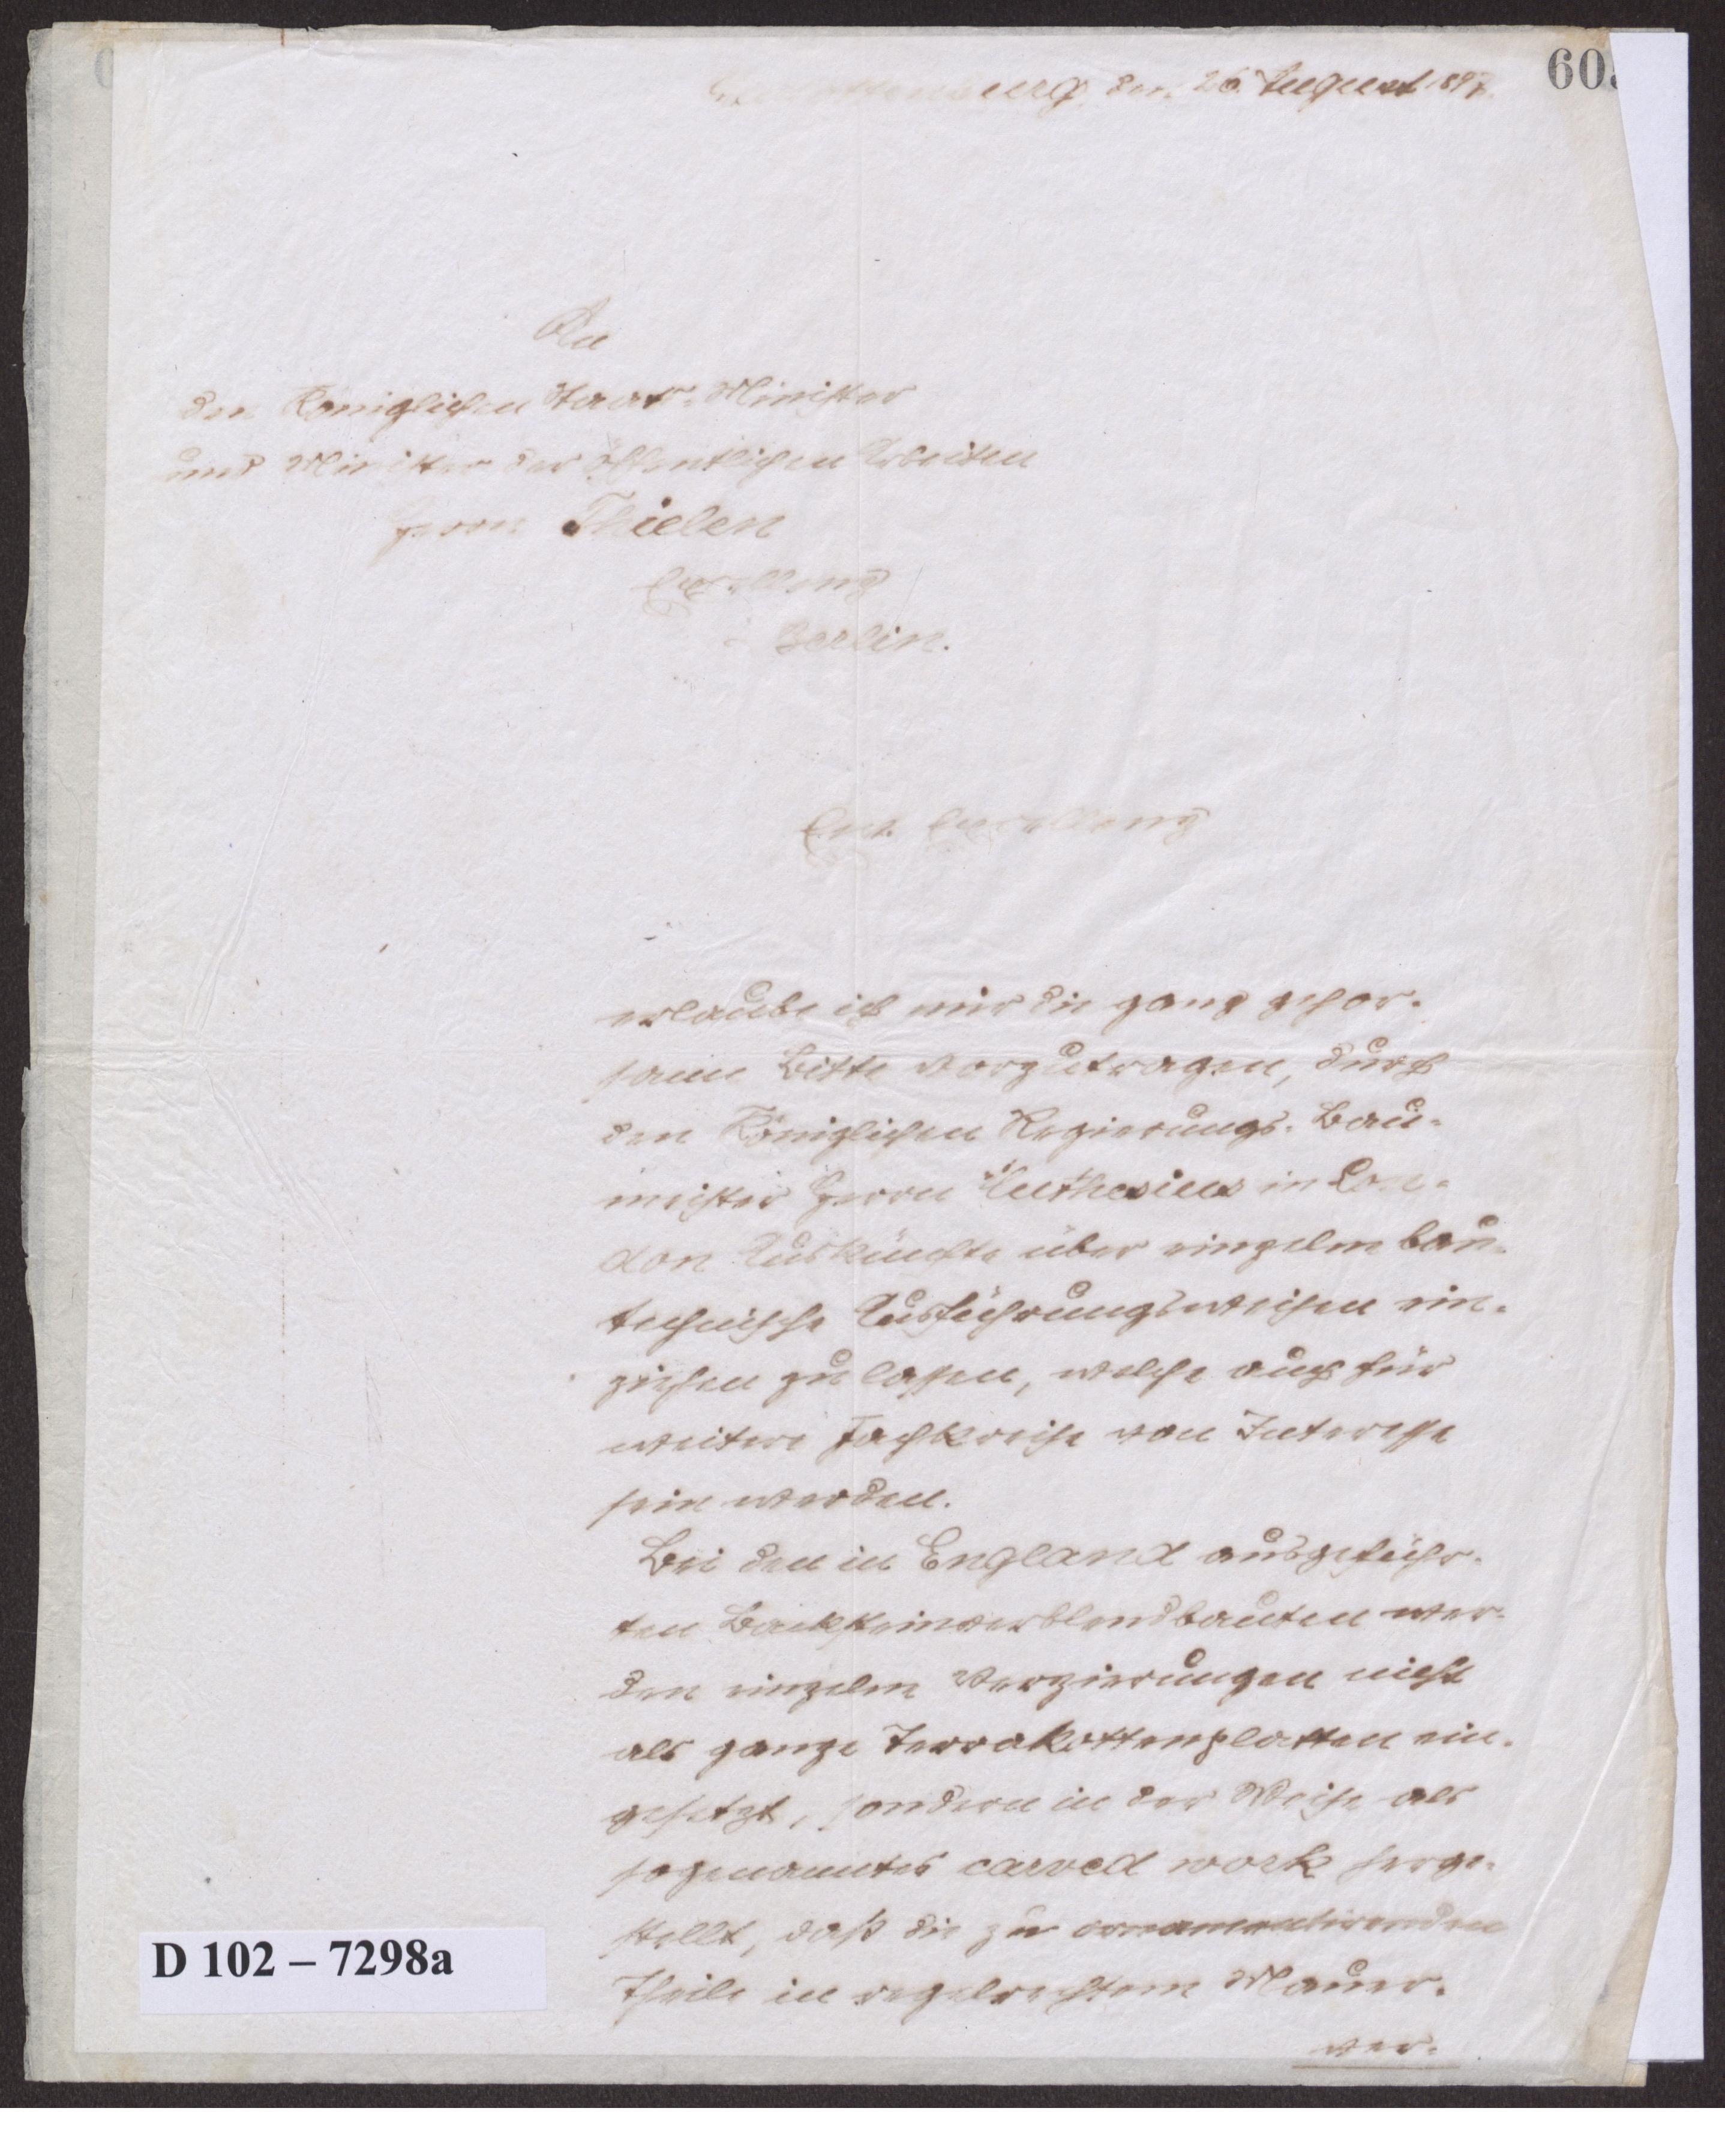 den 26. August 189
60
An
den Königlichen Staats-Minister
und Minister der öffentlichen Arbeiten
Herrn Thielen
Excellenz
Berlin.
Eure Excellenz
erlaube ich mir die ganz gehor-
same Bitte vorzutragen, durch
den Königlichen Regierungs-Bau-
meister Herrn Muthesius in Lon-
don Auskünfte über einzelne bau-
technische Ausführungsweisen ein-
ziehen zu lassen, welche auch für
weitere Fachkreise von Interesse
sein werden.
Bei den in England ausgeführ-
ten Backsteinverblendbauten wer-
den einzelne Verzierungen nicht
als ganze Terrakottenplatten ein-
gesetzt, sondern in der Weise als
sogenanntes carved work herge-
stellt, daß die zu ornamentirenden
Theile in regelrechtem Mauer-
ver-
D 102 – 7298a